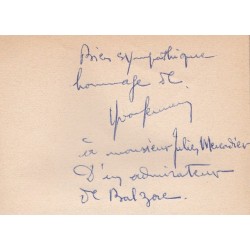 Bien sympathique
hommage de
à monsieur Jules
D'un admirateur
de Balzac.